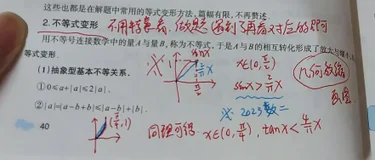 这些也都是在解题中常用的等式变形方法,篇幅有限,不再赘述.
2.不等式变形 不用特意看,做题遇到了再看对应的即可
用不等号连接数学中的量A与量B,称为不等式,于是A与B的相互转化形成了放大与缩小
等式变形.
(1)抽象型基本不等关系.
①0≤a+|a|≤2|a|.
②|a|=|a-b+b|≤|a-b|+|b|.
40
sinx
2/π x
π/2
x∈(0, π/2)
sinx>2/π x
几何放缩
画图
※ 2023数二
(π/4,1)
同理可得 x∈(0, π/4), tanx<4/π x